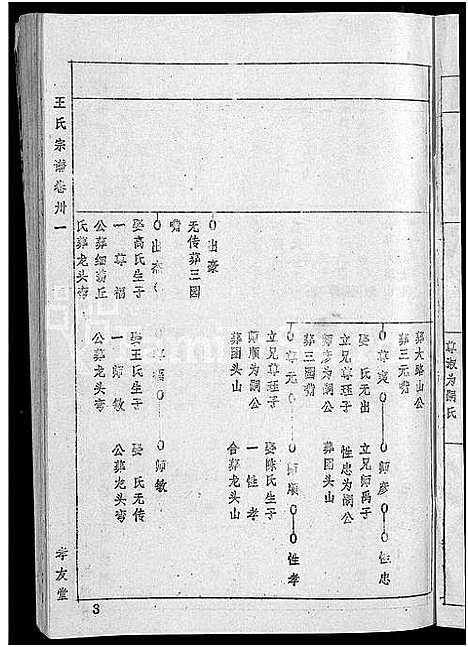 尊淑为嗣氏
葬大路山公
葬三元嘴
尊爽 师彦 性忠
娶 氏无出
立兄尊珏子
师彦为嗣公
葬三圆嘴
立兄师禹子
性忠为嗣公
葬团头山
尊元 师顺 性孝
立兄尊珏子
师顺为嗣公
葬团头山
娶陈氏生子
一 性孝
合葬龙头山
出豪
无传葬三圆
嘴
出杰
娶高氏生子
一 尊福
公葬细葛丘
氏葬龙头弯
尊福 师敏
娶王氏生子
一 师敏
公葬龙头弯
娶 氏无传
公葬龙头弯
王氏宗谱卷卅一
孝友堂
3